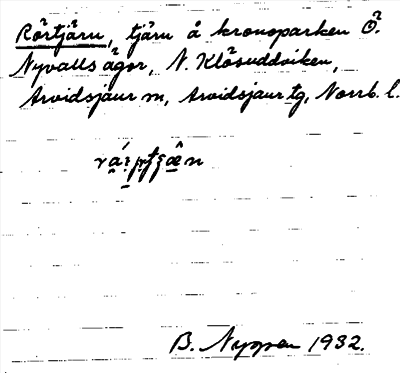 Rörtjärn, tjärn å kronoparken Ö.
Nyvalls ägor, N. Klösuddviken,
Arvidsjaur sn, Arvidsjaur tg, Norrb. l.
B. Nygren 1932.